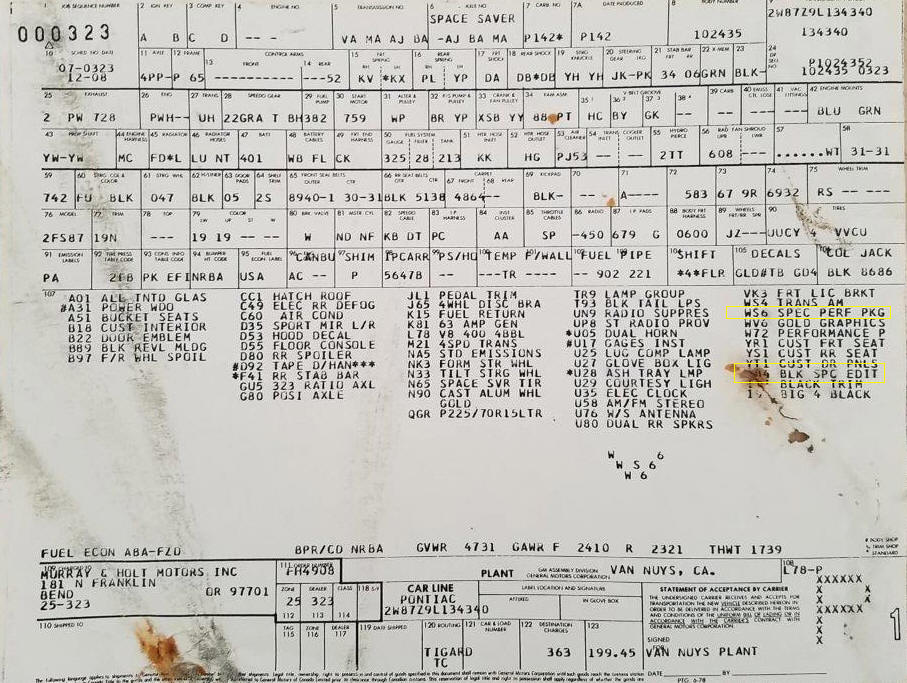 1 JOB SEQUENCE NUMBER 2 IGN KEY 3 COMP KEY 4 ENGINE NO. 5 TRANSMISSION NO. 6 AXLE NO. 7 CARB NO. 7A DATE PRODUCED 8 BODY NUMBER 9 VEHICLE IDENTIFICATION NUMBER
SPACE SAVER 2W87Z9L134340
000323 A B C D -- - VA MA AJ BA -AJ BA MA P142* P142 102435 134340
10 SCHED NO DATE 11 AXLE 12 FRAME CONTROL ARMS 13 FRONT 14 REAR 15 FRT SPRING 16 REAR SPRING 17 FRT SHOCK 18 REAR SHOCK 19 STRG KNUCKLE 20 STEERING GEAR LKG 21 STAB BAR FRT RR 22 X-MEM 23 24
07-0323 P1024352
12-08 4PP-P 65 -------------52 KV *KX PL YP DA DB*DB YH YH JK-PK 34 06GRN BLK- 102435 0323
25 EXHAUST 26 ENG 27 TRANS 28 SPEEDO GEAR 29 FUEL PUMP 30 START MOTOR 31 ALTER & PULLEY 32 P/S PUMP & PULLEY 33 CRANK & FAN PULLEY 34 FAN ASM. V-BELT GROOVE 35 36 37 38 39 CARB 40 EMISS CTL LOSE 41 VAC FITTINGS 42 ENGINE MOUNTS
2 PW 728 PWH-- UH 22GRA T BH382 759 WP BR YP XSB YY 88 PT HC BY GK BLU GRN
43 PROP SHAFT 44 ENGINE HARNESS 45 RADIATOR 46 RADIATOR HOSES 47 BATT 48 BATTERY CABLES 49 FRT END HARNESS 50 FUEL SYSTEM GAUGE FILLER TANK 51 HTR HOSE INLET 52 HTR HOSE OUTLET 53 AIR CLEANER 54 TRANS INLET COOLER OUTLET 55 HYDRO PIERCE 56 RAD FAN SHROUD UPR LWR 57 58
YW-YW MC FD*L LU NT 401 WB FL CK 325 28 213 KK HG PJ53 -- -- 2TT 608 --- ......WT 31-31
59 60 STRG COL & COLOR 61 STRG WHL 62 H/LINER 63 DOOR PADS 64 SHELF TRIM 65 FRONT SEAT BELTS OUTER CTR 66 RR SEAT BELTS OUTER CTR 67 FRONT CARPET 68 REAR 69 KICKPAD 70 71 72 73 74 75 WHEEL TRIM
742 FU BLK 047 BLK 05 2S 8940-1 30-31BLK 5138 4864-- BLK- A--- 583 67 9R 6932 RS -- ---
76 MODEL 77 TRIM 78 TOP 79 COLOR LW UP ST W 80 BRK VALVE 81 MSTR CYL 82 SPEEDO CABLE 83 I.P. HARNESS 84 INST CLUSTER 85 THROTTLE CABLES 86 RADIO 87 I.P. PADS 88 BODY FRT HARNESS 89 WHEELS FRT/RR SPR 90 TIRES
2FS87 19N 19 19 -- - W ND NF KB DT PC AA SP -450 679 G 0600 JZ---JUCY 4 VVCU
91 EMISSION LABELS 92 TIRE PRESS TABLE CODE 93 CONS INFO TABLE CODE 94 BUMPER HT CODE 95 FUEL ECON LABEL CANBU SHIM IPCARR PS/HO TEMP F/WALL FUEL PIPE SHIFT DECALS COL JACK
PA 2FB PK EFINRBA USA AC -- P 56478 -- ---TR ---- -- 902 221 *4*FLR GLD#TB GD4 BLK 8686
107
A01 ALL TNTD GLAS
#A31 POWER WDO
A51 BUCKET SEATS
B18 CUST INTERIOR
B22 DOOR EMBLEM
B89 BLK REVL MLDG
B97 F/R WHL SPOIL
CC1 HATCH ROOF
C49 ELEC RR DEFOG
C60 AIR COND
D35 SPORT MIR L/R
D53 HOOD DECAL
D55 FLOOR CONSOLE
D80 RR SPOILER
#D92 TAPE D/HAN***
*F41 RR STAB BAR
GU5 323 RATIO AXL
G80 POSI AXLE
JL1 PEDAL TRIM
J65 4WHL DISC BRA
K15 FUEL RETURN
K81 63 AMP GEN
L78 V8 400 4BBL
M21 4SPD TRANS
NA5 STD EMISSIONS
NK3 FORM STR WHL
N33 TILT STRG WHL
N65 SPACE SVR TIR
N90 CAST ALUM WHL
GOLD
QGR P225/70R15LTR
TR9 LAMP GROUP
T93 BLK TAIL LPS
UN9 RADIO SUPPRES
UP8 ST RADIO PROV
*U05 DUAL HORN
#U17 GAGES INST
U25 LUG COMP LAMP
U27 GLOVE BOX LIG
*U28 ASH TRAY LMP
U29 COURTESY LIGH
U35 ELEC CLOCK
U58 AM/FM STEREO
U76 W/S ANTENNA
U80 DUAL RR SPKRS
VK3 FRT LIC BRKT
WS4 TRANS AM
WS6 SPEC PERF PKG
WV6 GOLD GRAPHICS
W72 PERFORMANCE P
YR1 CUST FRT SEAT
YS1 CUST RR SEAT
YT1 CUST DR PNLS
BLK SPC EDIT
BLACK TRIM
BIG 4 BLACK
W W
W S 6 6
W 6
FUEL ECON ABA-FZD BPR/CD NRBA GVWR 4731 GAWR F 2410 R 2321 THWT 1739
# BODY SHOP
* TRIM SHOP
MURRAY & HOLT MOTORS INC
181 N FRANKLIN
BEND OR 97701
25-323
111 ORDER NUMBER
FH4908
ZONE DEALER CLASS
25 323
112 113 114
TAG 115 ZONE 116 DEALER 117
118 S/F
PLANT GM ASSEMBLY DIVISION GENERAL MOTORS CORPORATION VAN NUYS, CA.
CAR LINE
PONTIAC
2W87Z9L134340
LABEL LOCATION AND SIGNATURE
AFFIXED IN GLOVE BOX
119 DATE SHIPPED 120 ROUTING 121 CAR & LOAD NUMBER 122 DESTINATION CHARGES 123
TIGARD 363 199.45
TC
108
L78-P
STATEMENT OF ACCEPTANCE BY CARRIER
THE UNDERSIGNED CARRIER RECEIVES AND ACCEPTS FOR TRANSPORTATION THE NEW VEHICLE DESCRIBED HEREIN
SIGNED
VAN NUYS PLANT
DATE BY
XXXXXX
X X
X X
XXXXXX
X
X
X
1
110 SHIPPED TO
PTG 6-78